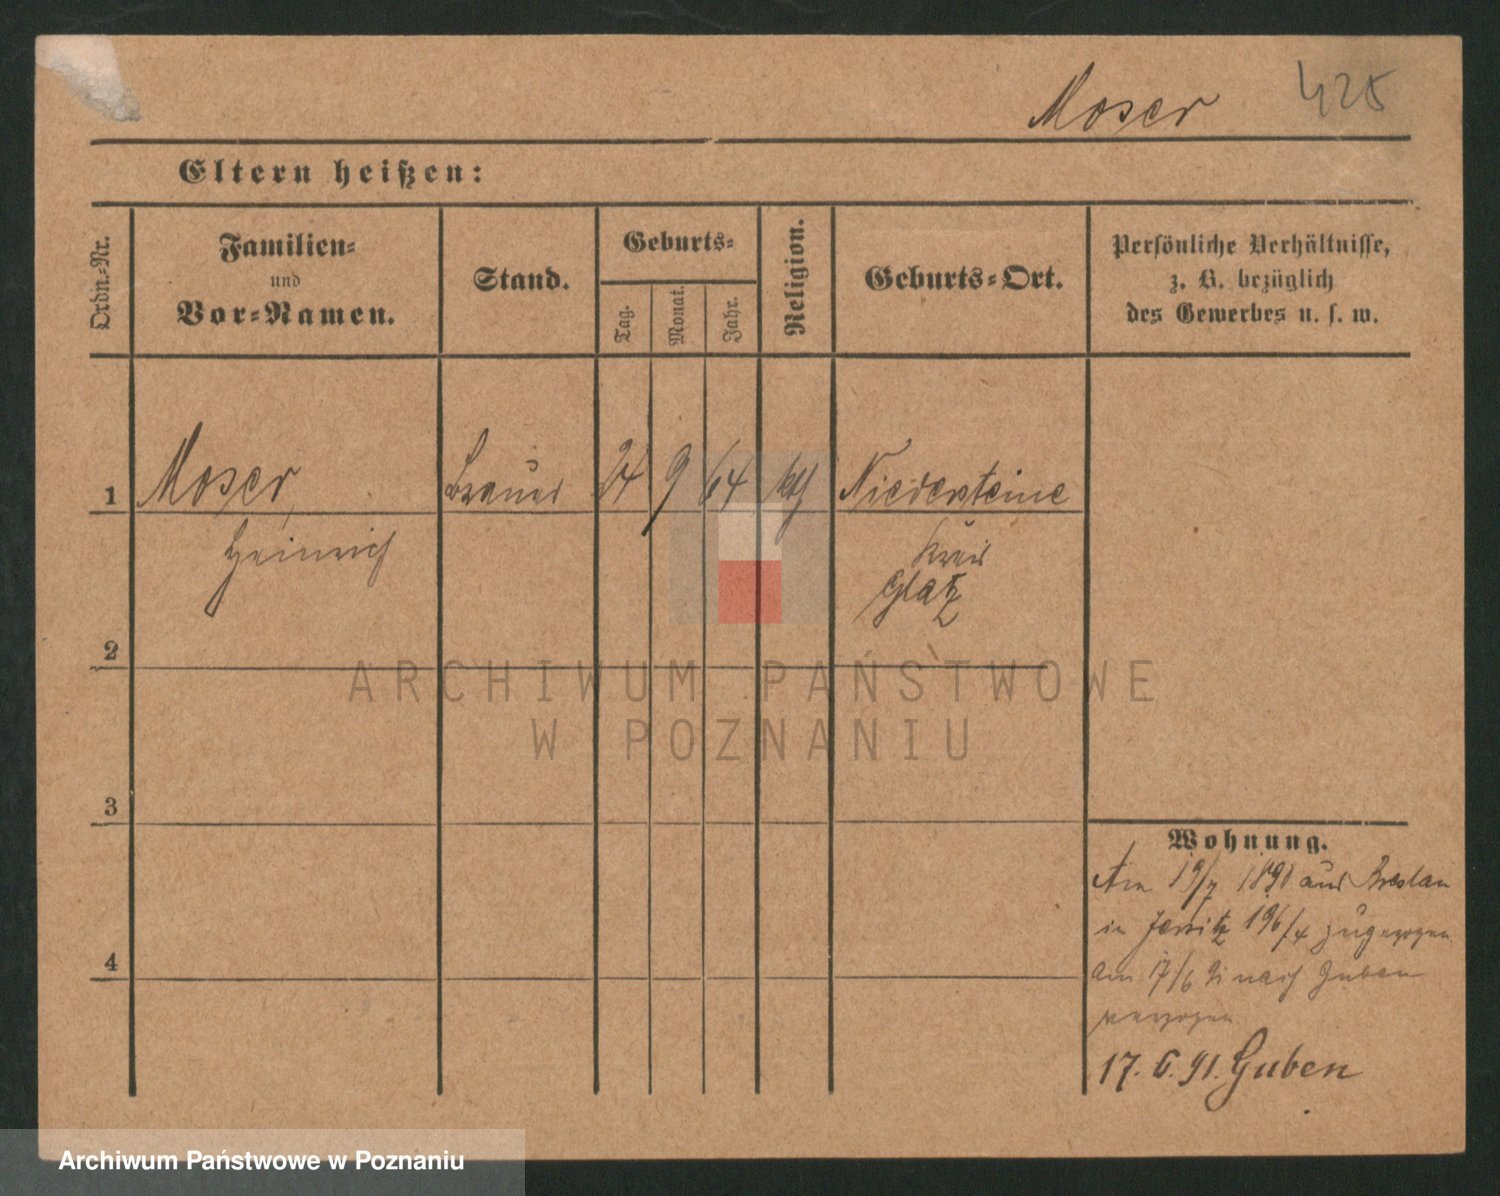 Moser 425
Eltern heißen:
Ordn.-Nr.
Familien-
und
Vor-Namen.
Stand.
Geburts-
Tag.
Monat.
Jahr.
Religion.
Geburts-Ort.
Persönliche Verhältnisse,
z. B. bezüglich
des Gewerbes u. s. w.
1 Moser, Brauer 24 9 64 kth Niedersteine
Heinrich Kreis
Glatz
2
3
4
Wohnung.
Am 19/7 1890 aus Breslau
in Jersitz 196/4 zugezogen
Am 17/6 91 nach Guben
verzogen
17. 6. 91. Guben
ARCHIWUM PAŃSTWOWE
W POZNANIU
Archiwum Państwowe w Poznaniu